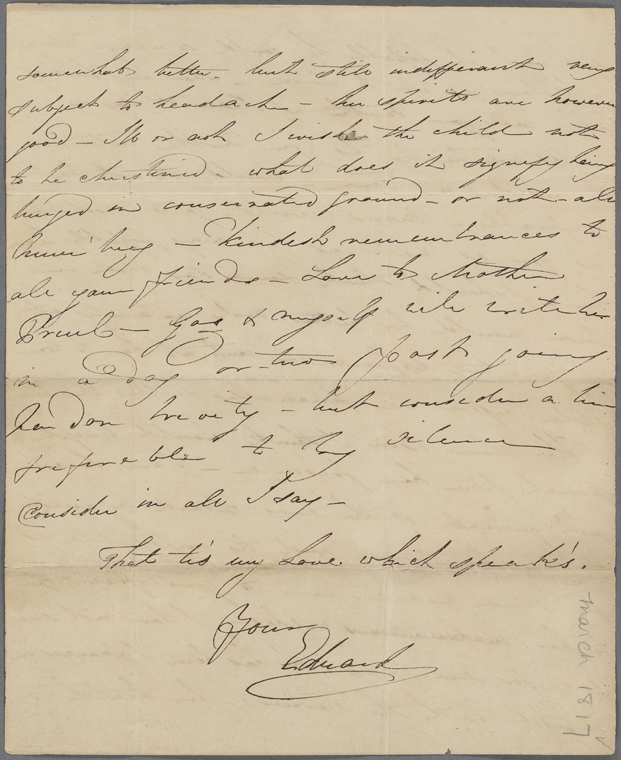 somewhat better - but still indifferent being
subject to headache - her spirits are however
good - Ill or not I wish the child not
to be christined - what does it signify being
buried in consecrated ground - or not - all
hum'bug - kindest remembrances to
all your friends - Love to Mother
& myself will write her
in a day or two Post going
Pardon brevity - but consider a line
preferable to my silence
Consider in all I say -
That tis my Love which speak's.
Yours
Edward
March 1817